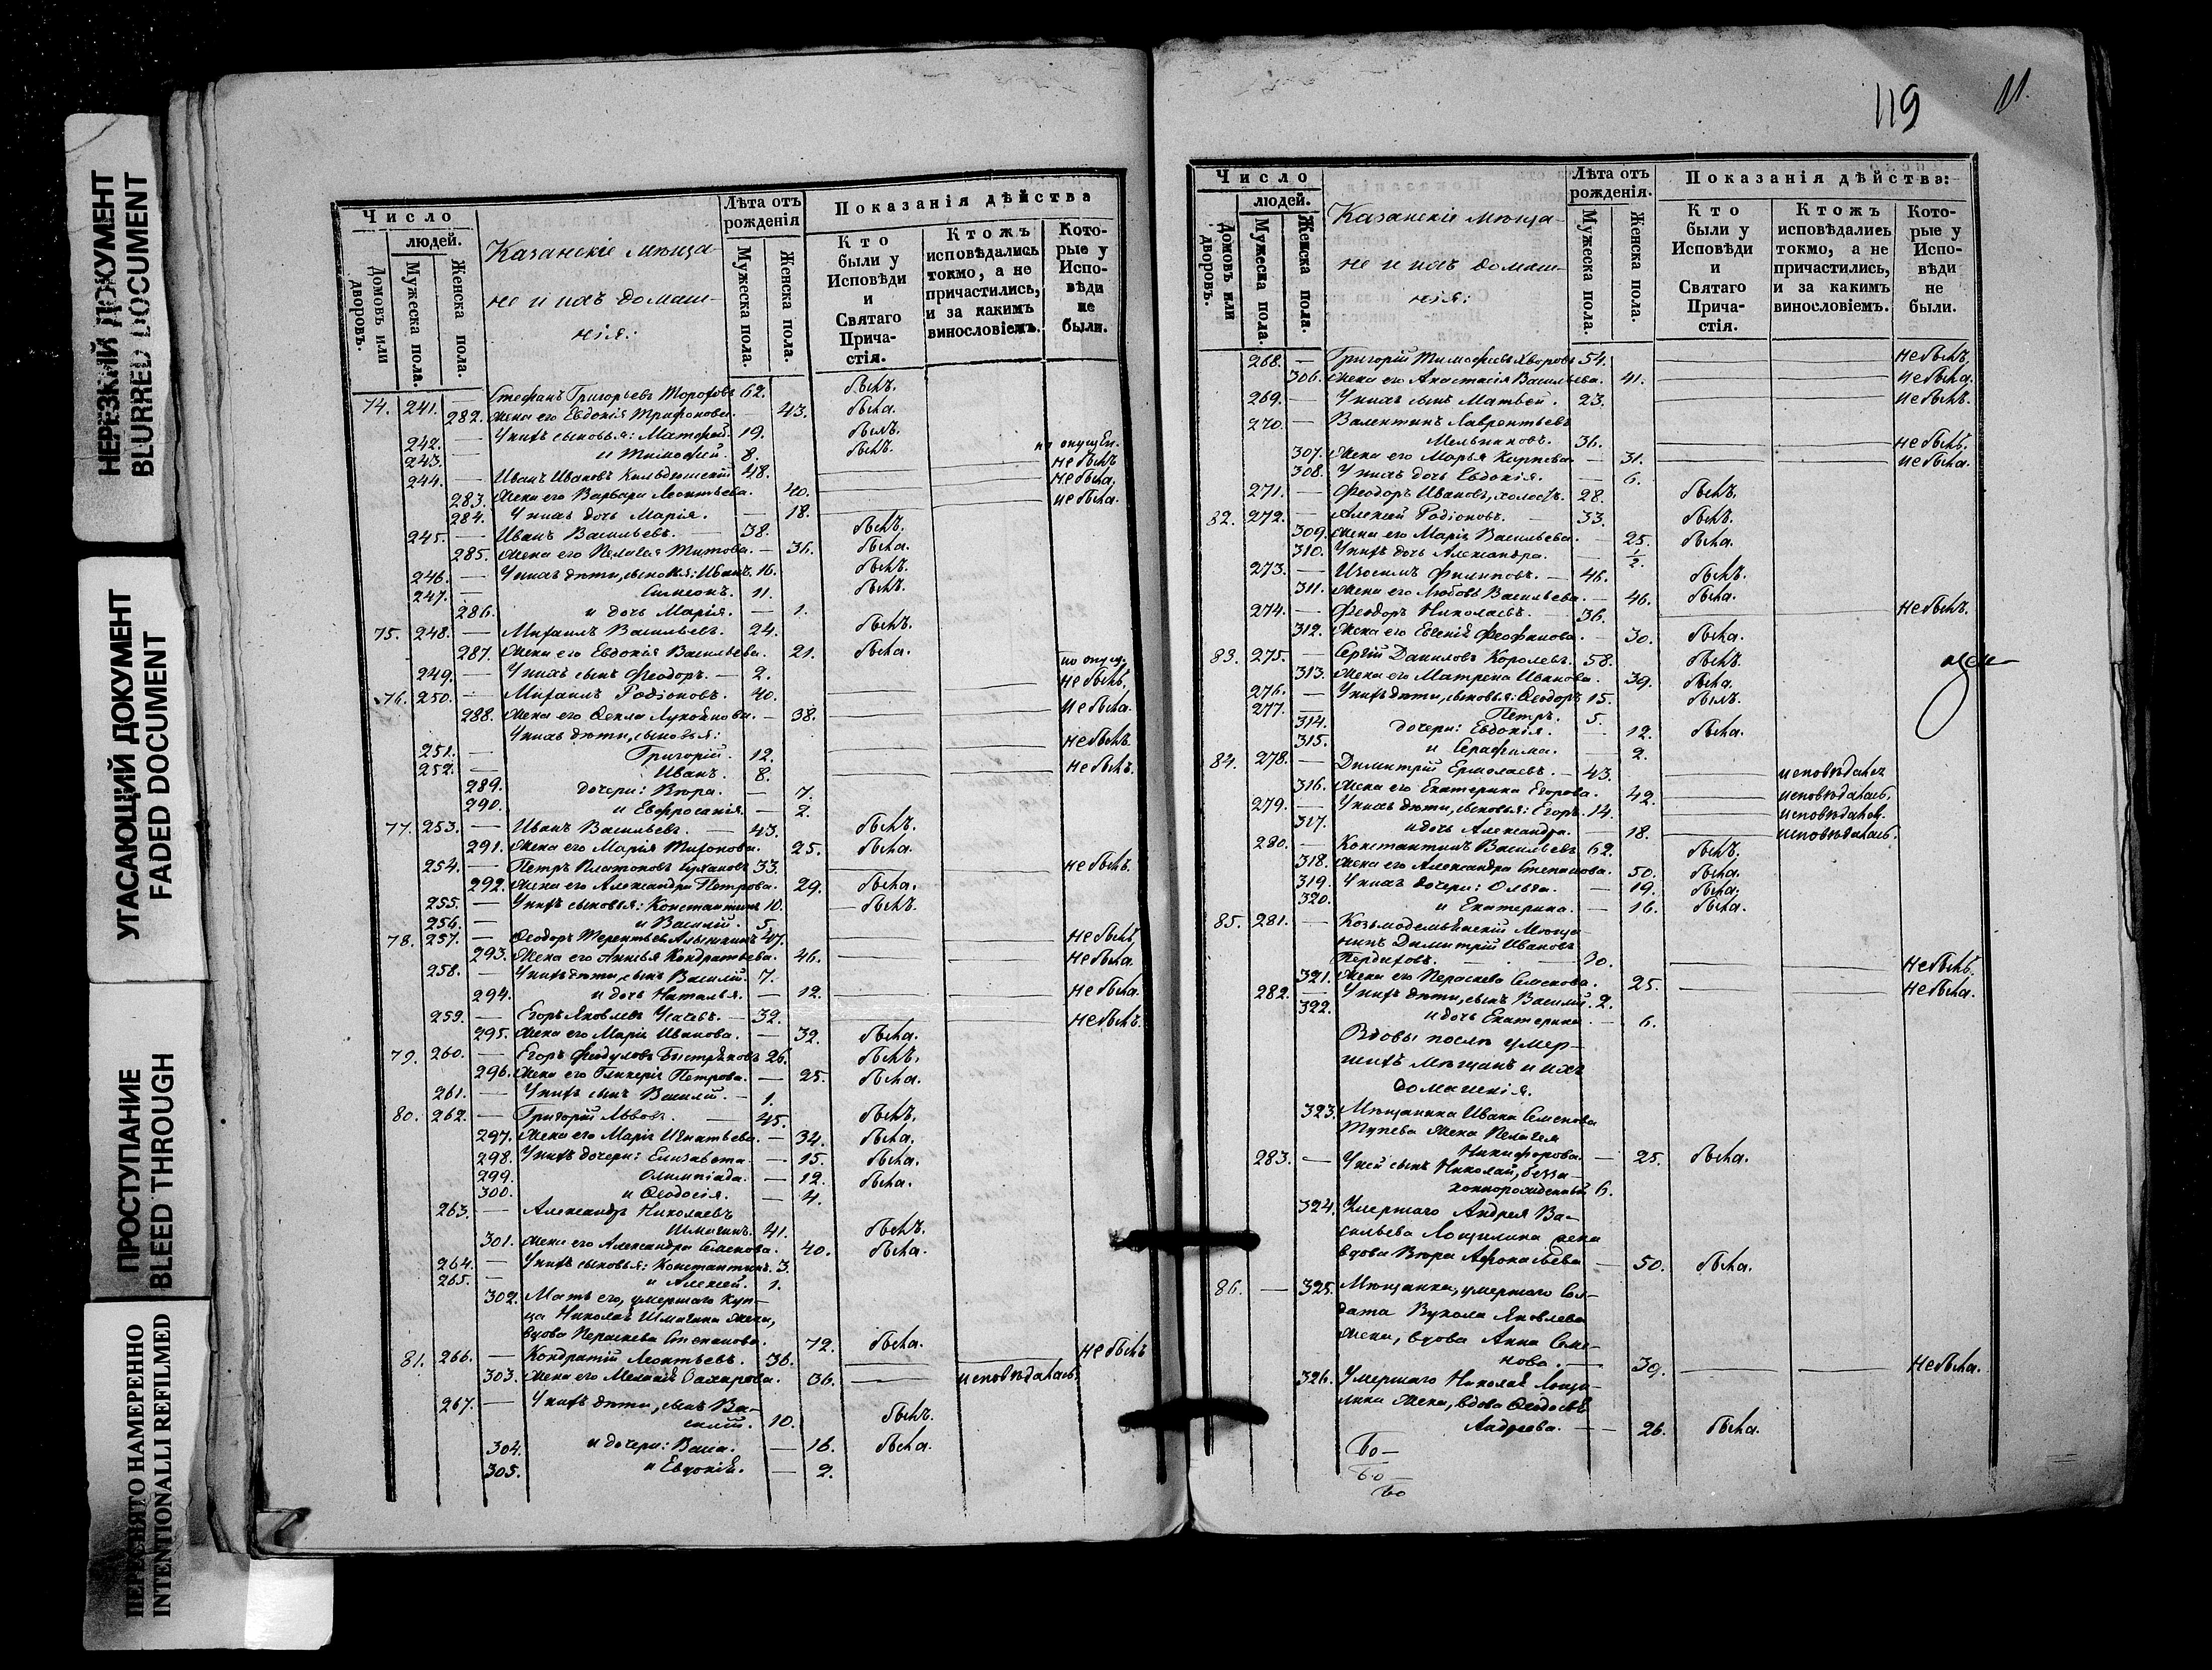 НЕРЕЗКИЙ ДОКУМЕНТ
BLURRED DOCUMENT
УГАСАЮЩИЙ ДОКУМЕНТ
FADED DOCUMENT
ПРОСТУПАНИЕ
BLEED THROUGH
ПЕРЕСНЯТО НАМЕРЕННО
INTENTIONALLI REFILMED
Число
людей.
Домовъ или дворовъ.
Мужеска пола.
Женска пола.
Казанскіе мѣща-
не и ихъ домаш-
нія:
Лѣта отъ рожденія
Мужеска пола.
Женска пола.
Показанія дѣйства
Кто были у Исповѣди и Святаго Прича-стія.
Ктожъ исповѣдались токмо, а не причастились, и за какимъ винословіемъ.
Кото-рые у Испо-вѣди не были.
74. 241. — Стефанъ Григорьевъ 62. былъ.
282. Жена его Евдокія Трифонова. — 43. была.
242. — У нихъ сыновья: Матфей. 19. былъ.
243. — и Тимофей. 8. былъ.
по опущен.
244. — Иванъ Ивановъ 48. не былъ
283. Жена его Варвара Леонтьева. 40. не была,
284. У нихъ дочь Марія. — 18. не была.
245. — Иванъ Васильевъ. — 38. былъ.
285. Жена его Пелагея Титова. — 36. была.
246. — У нихъ дѣти, сыновья: Иванъ. 16. былъ.
247. — Симеонъ. 11. былъ.
286. и дочь Марія. — 1.
75. 248. — Михаилъ Васильевъ. 24. былъ.
287. Жена его Евдокія Васильева. 21. была.
249. — У нихъ сынъ Феодоръ. — 2.
по опущ.
76. 250. — Михаилъ Родіоновъ. 40. не былъ,
288. Жена его Ѳекла Лукоянова. — 38. не была.
У нихъ дѣти, сыновья:
251. — Григорій. 12. не былъ.
252. — Иванъ. 8. не былъ.
289. дочери: Вѣра. — 7.
290. и Евфросинія. — 2.
77. 253. — Иванъ Васильевъ. — 43. былъ.
291. Жена его Марія Тихонова. 25. была.
254. — Петръ Платоновъ 33. не былъ.
292. Жена его Александра Петрова. 29. была.
255. — У нихъ сыновья: Константинъ 10. — былъ.
256. — и Василій. 5.
78. 257. — Ѳеодоръ Терентьевъ 47. не былъ
293. Жена его Анисья Кондратьева. 46. не была.
258. — У нихъ дѣти, сынъ Василій. 7.
294. и дочь Наталья. — 12. не была.
259. — Егоръ Яковлевъ — 32. не былъ.
295. Жена его Марія Иванова. — 32. была.
79. 260. — Егоръ Феодуловъ Быстряковъ 26. былъ,
296. Жена его Гликерія Петрова. — 25. была.
261. — У нихъ сынъ Василій. — 1.
80. 262. — Григорій Львовъ. — 45. былъ,
297. Жена его Марія Игнатьева. — 34. была,
298. У нихъ дочери: Елизавета — 15. была.
299. Олимпіада. — 12. была.
300. и Ѳеодосія. — 4.
263. — Александръ Николаевъ
Шмагинъ. 41. былъ.
301. Жена его Александра Семенова. 40. была.
264. — У нихъ сыновья: Константинъ. 3.
265. — и Алексей. 1.
302. Мать его, умершаго куп-
ца Николая Шмагина жена,
вдова Параскева Степанова. 72. была.
81. 266. — Кондратій Леонтьевъ. 36. не былъ
303. Жена его Меланія Захарова. 36. исповѣдалась
267. — У нихъ дѣти, сынъ Ва-
силій. 10. былъ.
304. и дочери: Васса. — 16. была.
305. и Евдокія. — 2.
119 11.
Число
людей.
Домовъ или дворовъ.
Мужеска пола.
Женска пола.
Казанскіе мѣща-
не и ихъ домаш-
нія:
Лѣта отъ рожденія.
Мужеска пола.
Женска пола.
Показанія дѣйства:
Кто были у Исповѣди и Святаго Прича-стія.
Ктожъ исповѣдались токмо, а не причастились, и за какимъ винословіемъ.
Кото-рые у Испо-вѣди не были.
268. — Григорій Тимофеевъ Хворовъ 54. не былъ.
306. Жена его Анастасія Васильева. 41. не была.
269. — У нихъ сынъ Матвей. 23. не былъ.
270. — Валентинъ Лаврентьевъ
Мельниковъ. 36. не былъ.
307. Жена его Марья Карпова — 31. не была.
308. У нихъ дочь Евдокія. — 6.
271. — Феодоръ Ивановъ, холостъ. 28. былъ.
82. 272. — Алексей Родіоновъ. — 33. былъ.
309. Жена его Марія Васильева. — 25. была.
310. У нихъ дочь Александра. — 1/2.
273. — Изосимъ Филиповъ. — 46. былъ.
311. Жена его Любовь Васильева. — 46. была.
274. — Феодоръ Николаевъ. — 36. не былъ.
312. Жена его Евгенія Феофанова. — 30. была.
83. 275. — Сергій Даниловъ Королевъ. 58. былъ.
313. Жена его Матрена Иванова. 39. была.
276. — У нихъ дѣти, сыновья: Ѳеодоръ 15. былъ.
277. — Петръ. 5.
314. дочери: Евдокія. — 12. была.
315. и Серафима. — 2.
84. 278. — Димитрій Ермолаевъ. — 43. исповѣдался
316. Жена его Екатерина Егорова. 42. исповѣдалась.
279. — У нихъ дѣти, сыновья: Егоръ. 14. исповѣдался.
317. и дочь Александра. — 18. исповѣдалась.
280. — Константинъ Васильевъ 62. былъ.
318. Жена его Александра Степанова. 50. была.
319. У нихъ дочери: Ольга. — 19. была.
320. и Екатерина. — 16. была.
85. 281. — Козьмодемьянскій мѣща-
нинъ Димитрій Ивановъ
— 30. не былъ.
321. Жена его Параскева Семенова. 25. не была.
282. — У нихъ дѣти, сынъ Василій. 2.
322. и дочь Екатерина. — 6.
Вдовы послѣ умер-
шихъ мѣщанъ и ихъ
домашнія.
323. Мѣщанина Ивана Семенова
Тупева жена Пелагея
Никифорова. — 25. была.
283. — У ней сынъ Николай, незза-
коннорожденный 6.
324. Умершаго Андрея Ва-
сильева Лощилина жена
вдова Вѣра Афонасьева — 50. была.
86. — 325. Мѣщанка, умершаго сол-
дата Вукола Яковлева
жена, вдова Анна Семе-
нова. — 39. не была.
326. Умершаго Николая Лощи-
лина жена, вдова Ѳеодосья
Андреева. — 26. была.